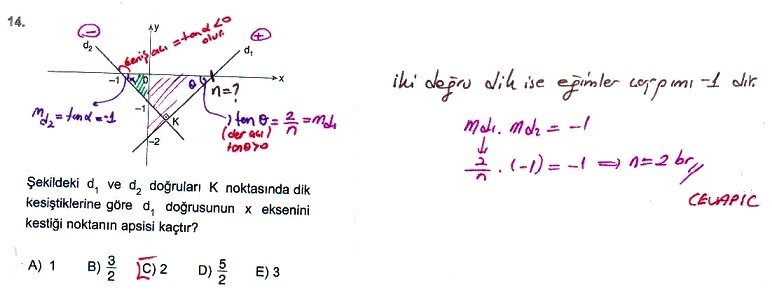 14.
y
d₂
d₁
geniş açı = tanα < 0
olur.
-1
α
0
θ
n=?
x
-1
K
-2
m_d₂ = tanα = -1
tanθ = 2/n = m_d₁
(dar açı)
tanθ>0
Şekildeki d₁ ve d₂ doğruları K noktasında dik
kesiştiklerine göre d₁ doğrusunun x eksenini
kestiği noktanın apsisi kaçtır?
A) 1 B) 3/2 C) 2 D) 5/2 E) 3
iki doğru dik ise eğimler çarpımı -1 dir.
m_d₁ . m_d₂ = -1
2/n . (-1) = -1 ⇒ n=2 br //
CEVAP C